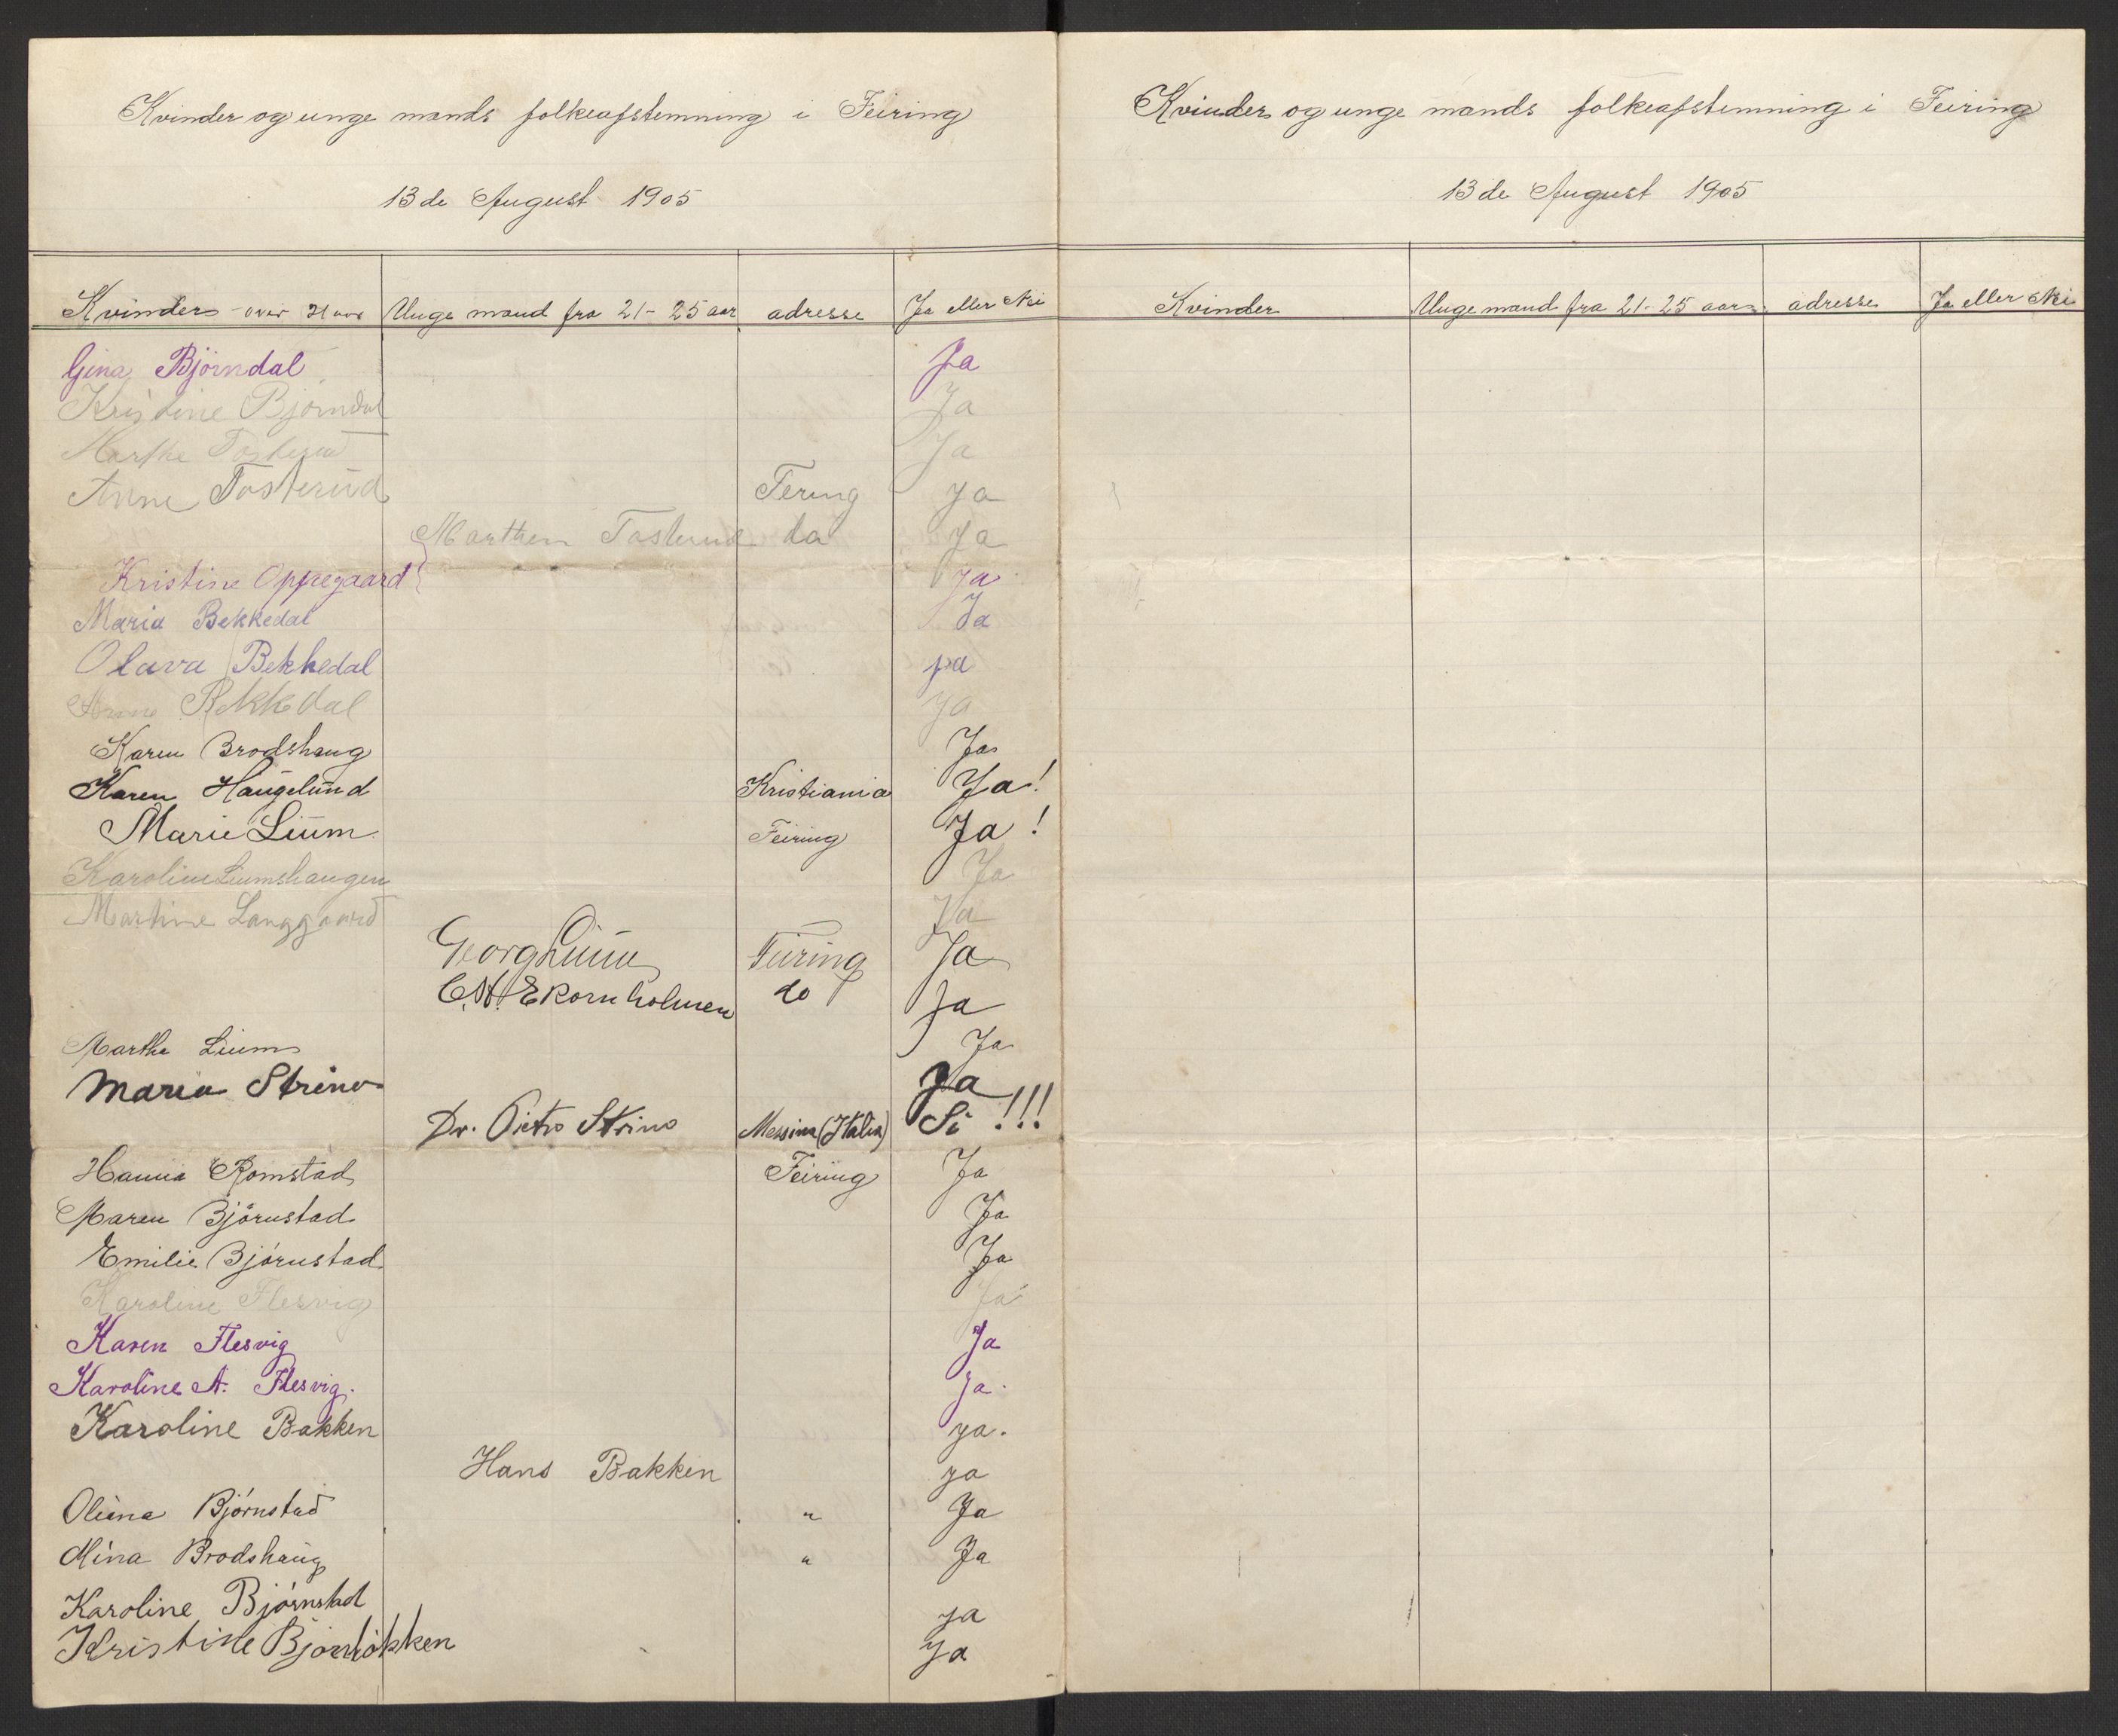 Kvinder og unge mænds folkeafstemning i Feiring
13de August 1905
Kvinder over 21 aar Unge mænd fra 21-25 aar adresse Ja eller Nei
Gina Björndal Ja
Kristine Björndal Ja
Marthe Ja
Anne Tosterud Fering ja
Marthen da Ja
Kristine Oppegaard ja
Maria Bekkedal Ja
Olava Bekkedal ja
Anne Bekkedal ja
Karen Brodshaug Ja
Karen Haugelund Kristiania Ja!
Marie Lium Feiring Ja!
Karoline Liumshaugen Ja
Martine Langgaard Ja
Georg Lium Feiring Ja
C. H. Ekornholmen do Ja
Marthe Lium Ja
Maria Strino Ja
Dr. Pietro Strino Messina (Italia) Si !!!
Hanna Romstad Feiring Ja
Maren Björnstad Ja
Emilie Björnstad Ja
Karoline Flesvig Ja
Karen Flesvig Ja
Karoline A. Flesvig. Ja.
Karoline Bakken ja.
Hans Bakken ja
Oliana Björnstad " Ja
Mina Brodshaug " Ja
Karoline Björnstad ja
Kristine Björnlökken ja
Kvinder og unge mænds folkeafstemning i Feiring
13de August 1905
Kvinder Unge mænd fra 21-25 aar adresse Ja eller Nei